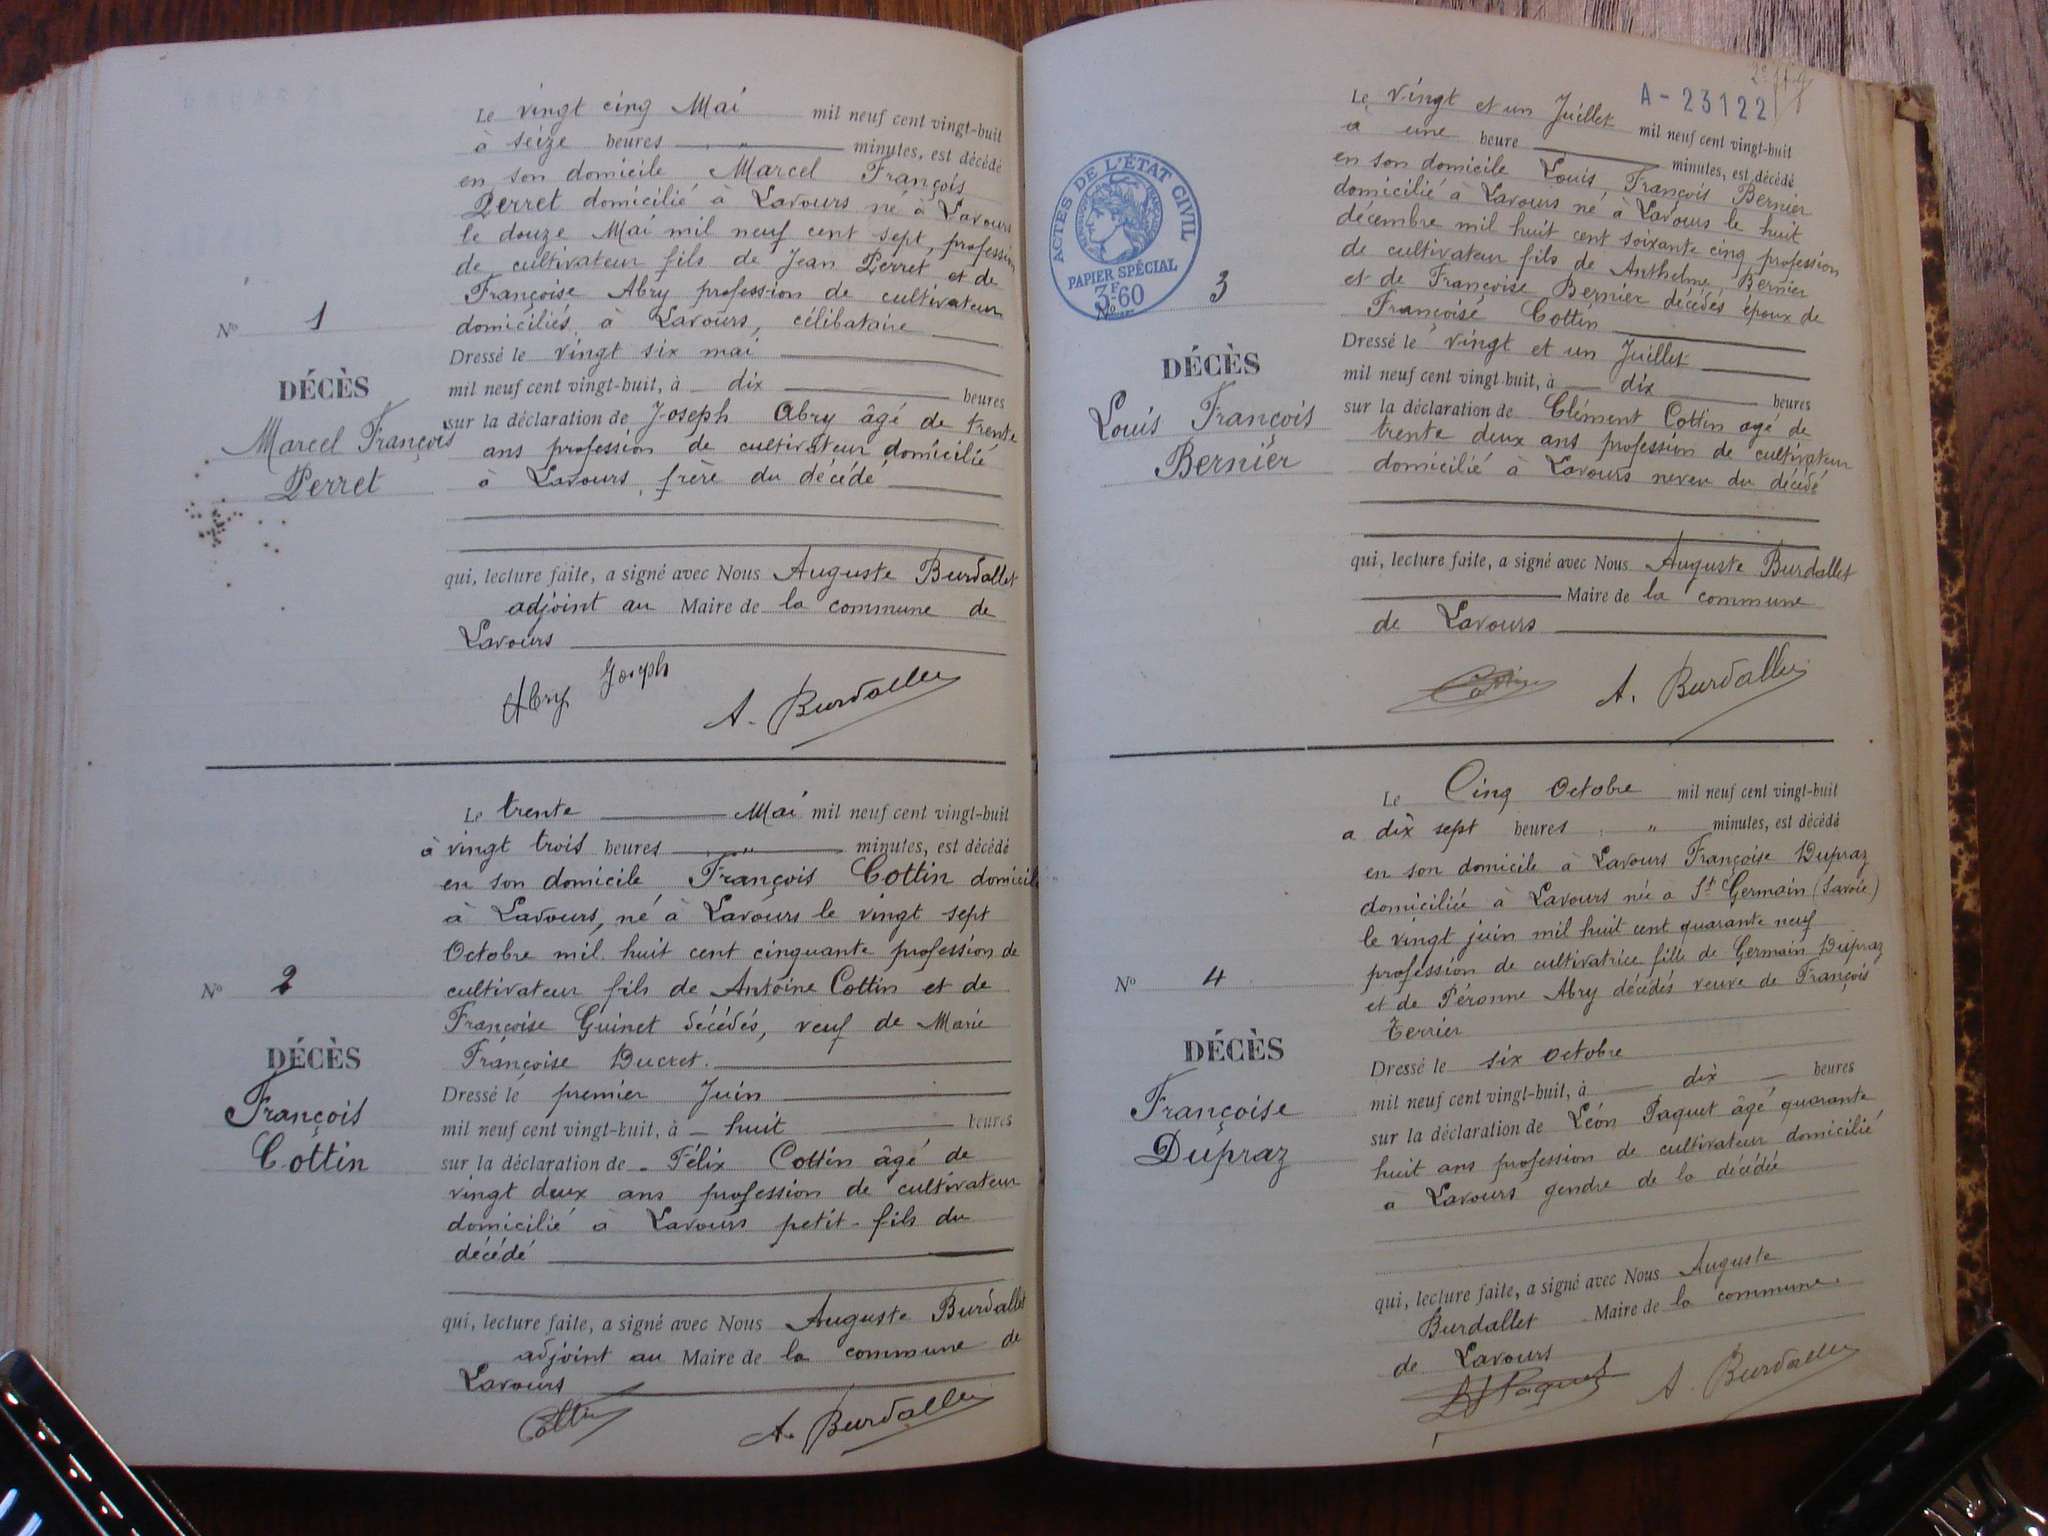 Le vingt cinq Mai mil neuf cent vingt-huit
à seize heures " minutes, est décédé
en son domicile Marcel François
Perret domicilié à Lavours né à Lavours
le douze Mai mil neuf cent sept, profession
de cultivateur fils de Jean Perret et de
Françoise Abry profession de cultivateur
domiciliés à Lavours, célibataire
Dressé le vingt six mai
mil neuf cent vingt-huit, à dix heures
sur la déclaration de Joseph Abry âgé de trente
ans profession de cultivateur domicilié
à Lavours, frère du décédé
qui, lecture faite, a signé avec Nous Auguste Burdallet
adjoint au Maire de la commune de
Lavours
Abry Joseph
A. Burdallet
No 1
DÉCÈS
Marcel François
Perret
Le trente Mai mil neuf cent vingt-huit
à vingt trois heures " minutes, est décédé
en son domicile François Cottin domicilié
à Lavours, né à Lavours le vingt sept
Octobre mil huit cent cinquante profession de
cultivateur fils de Antoine Cottin et de
Françoise Guinet décédés, veuf de Marie
Françoise Ducret.
Dressé le premier Juin
mil neuf cent vingt-huit, à huit heures
sur la déclaration de Félix Cottin âgé de
vingt deux ans profession de cultivateur
domicilié à Lavours petit-fils du
décédé
qui, lecture faite, a signé avec Nous Auguste Burdallet
adjoint au Maire de la commune de
Lavours
Cottin
A. Burdallet
No 2
DÉCÈS
François
Cottin
A-23122
Le vingt et un Juillet mil neuf cent vingt-huit
a une heure minutes, est décédé
en son domicile Louis François Bernier
domicilié à Lavours né à Lavours le huit
décembre mil huit cent soixante cinq profession
de cultivateur fils de Anthelme Bernier
et de Françoise Bernier décédés époux de
Françoise Cottin
Dressé le vingt et un Juillet
mil neuf cent vingt-huit, à dix heures
sur la déclaration de Clément Cottin agé de
trente deux ans profession de cultivateur
domicilié à Lavours neveu du décédé
qui, lecture faite, a signé avec Nous Auguste Burdallet
Maire de la commune
de Lavours
Cottin
A. Burdallet
ACTES DE L'ÉTAT CIVIL
PAPIER SPÉCIAL
3F.60
No 3
DÉCÈS
Louis François
Bernier
Le Cinq Octobre mil neuf cent vingt-huit
a dix sept heures " minutes, est décédé
en son domicile à Lavours Françoise Dupraz
domiciliée à Lavours née à St Germain (Savoie)
le vingt juin mil huit cent quarante neuf
profession de cultivatrice fille de Germain Dupraz
et de Péronne Abry décédés veuve de François
Terrier
Dressé le six octobre
mil neuf cent vingt-huit, à dix heures
sur la déclaration de Léon Paquet âgé quarante
huit ans profession de cultivateur domicilié
à Lavours gendre de la décédée
qui, lecture faite, a signé avec Nous Auguste
Burdallet Maire de la commune
de Lavours
Paquet
A. Burdallet
No 4
DÉCÈS
Françoise
Dupraz